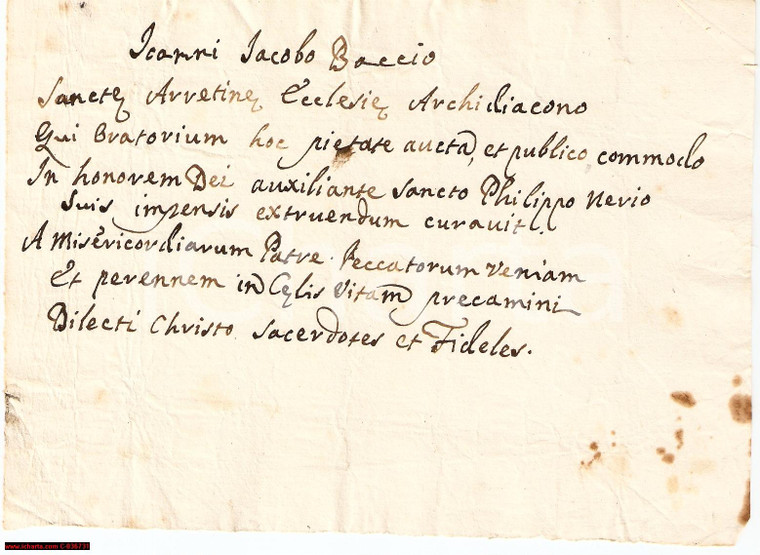 Ioanni Iacobo Baccio
Sanctę Arretinę Ecclesię Archidiacono
Qui Oratorium hoc pietate aucta, et publico commodo
In honorem Dei auxiliante Sancto Philippo Nerio
Suis impensis extruendum curavit.
A Misericordiarum Patre Peccatorum Veniam
Et perennem in Cęlis Vitam precamini
Dilecti Christo Sacerdotes et Fideles.